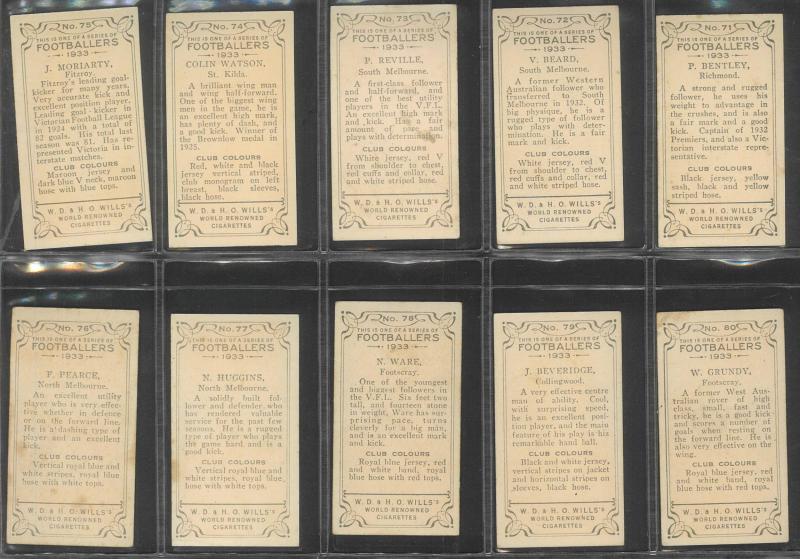 No. 75
THIS IS ONE OF A SERIES OF
FOOTBALLERS
1933
J. MORIARTY,
Fitzroy.
Fitzroy's leading goal-
kicker for many years.
Very accurate kick and
excellent position player.
Leading goal-kicker in
Victorian Football League
in 1924 with a total of
82 goals. His total last
season was 81. Has rep-
resented Victoria in in-
terstate matches.
CLUB COLOURS
Maroon jersey and
dark blue V neck, maroon
hose with blue tops.
W. D. & H. O. WILLS's
WORLD RENOWNED
CIGARETTES
No. 74
THIS IS ONE OF A SERIES OF
FOOTBALLERS
1933
COLIN WATSON,
St. Kilda.
A brilliant wing man
and wing half-forward.
One of the biggest wing
men in the game, he is
an excellent high mark,
has plenty of dash, and
a good kick. Winner of
the Brownlow medal in
1925.
CLUB COLOURS
Red, white and black
jersey vertical striped,
club monogram on left
breast, black sleeves,
black hose.
W. D. & H. O. WILLS's
WORLD RENOWNED
CIGARETTES
No. 73
THIS IS ONE OF A SERIES OF
FOOTBALLERS
1933
P. REVILLE,
South Melbourne.
A first-class follower
and half-forward, and
one of the best utility
players in the V.F.L.
An excellent high mark
and kick. Has a fair
amount of pace and
plays with determination.
CLUB COLOURS
White jersey, red V
from shoulder to chest,
red cuffs and collar, red
and white striped hose.
W. D. & H. O. WILLS's
WORLD RENOWNED
CIGARETTES
No. 72
THIS IS ONE OF A SERIES OF
FOOTBALLERS
1933
V. BEARD,
South Melbourne.
A former Western
Australian follower who
transferred to South
Melbourne in 1932. Of
big physique, he is a
rugged type of follower
who plays with deter-
mination. He is a fair
mark and kick.
CLUB COLOURS
White jersey, red V
from shoulder to chest,
red cuffs and collar, red
and white striped hose.
W. D. & H. O. WILLS's
WORLD RENOWNED
CIGARETTES
No. 71
THIS IS ONE OF A SERIES OF
FOOTBALLERS
1933
P. BENTLEY,
Richmond.
A strong and rugged
follower, he uses his
weight to advantage in
the crushes, and is also
a fair mark and a good
kick. Captain of 1932
Premiers, and also a Vic-
torian interstate repre-
sentative.
CLUB COLOURS
Black jersey, yellow
sash, black and yellow
striped hose.
W. D. & H. O. WILLS's
WORLD RENOWNED
CIGARETTES
No. 76
THIS IS ONE OF A SERIES OF
FOOTBALLERS
1933
F. PEARCE,
North Melbourne.
An excellent utility
player who is very effec-
tive whether in defence
or on the forward line.
He is a dashing type of
player and an excellent
kick.
CLUB COLOURS
Vertical royal blue and
white stripes, royal blue
hose with white tops.
W. D. & H. O. WILLS's
WORLD RENOWNED
CIGARETTES
No. 77
THIS IS ONE OF A SERIES OF
FOOTBALLERS
1933
N. HUGGINS,
North Melbourne.
A solidly built fol-
lower and defender who
has rendered valuable
service for the past few
seasons. He is a rugged
type of player who plays
the game hard and is a
good kick.
CLUB COLOURS
Vertical royal blue and
white stripes, royal blue
hose with white tops.
W. D. & H. O. WILLS's
WORLD RENOWNED
CIGARETTES
No. 78
THIS IS ONE OF A SERIES OF
FOOTBALLERS
1933
N. WARE,
Footscray.
One of the youngest
and biggest followers in
the V.F.L. Six feet two
tall, and fourteen stone
in weight, Ware has sur-
prising pace, turns
cleverly for a big man,
and is an excellent mark
and kick.
CLUB COLOURS
Royal blue jersey, red
and white band, royal
blue hose with red tops.
W. D. & H. O. WILLS's
WORLD RENOWNED
CIGARETTES
No. 79
THIS IS ONE OF A SERIES OF
FOOTBALLERS
1933
J. BEVERIDGE,
Collingwood.
A very effective centre
man of ability. Cool,
with surprising speed,
he is an excellent posi-
tion player, and the main
feature of his play is his
remarkable hand ball.
CLUB COLOURS
Black and white jersey,
vertical stripes on jacket
and horizontal stripes on
sleeves, black hose.
W. D. & H. O. WILLS's
WORLD RENOWNED
CIGARETTES
No. 80
THIS IS ONE OF A SERIES OF
FOOTBALLERS
1933
W. GRUNDY,
Footscray.
A former West Aus-
tralian rover of high
class, small, fast and
tricky, he is a good kick
and scores a number of
goals when resting on
the forward line. He is
also very effective on the
wing.
CLUB COLOURS
Royal blue jersey, red
and white band, royal
blue hose with red tops.
W. D. & H. O. WILLS's
WORLD RENOWNED
CIGARETTES